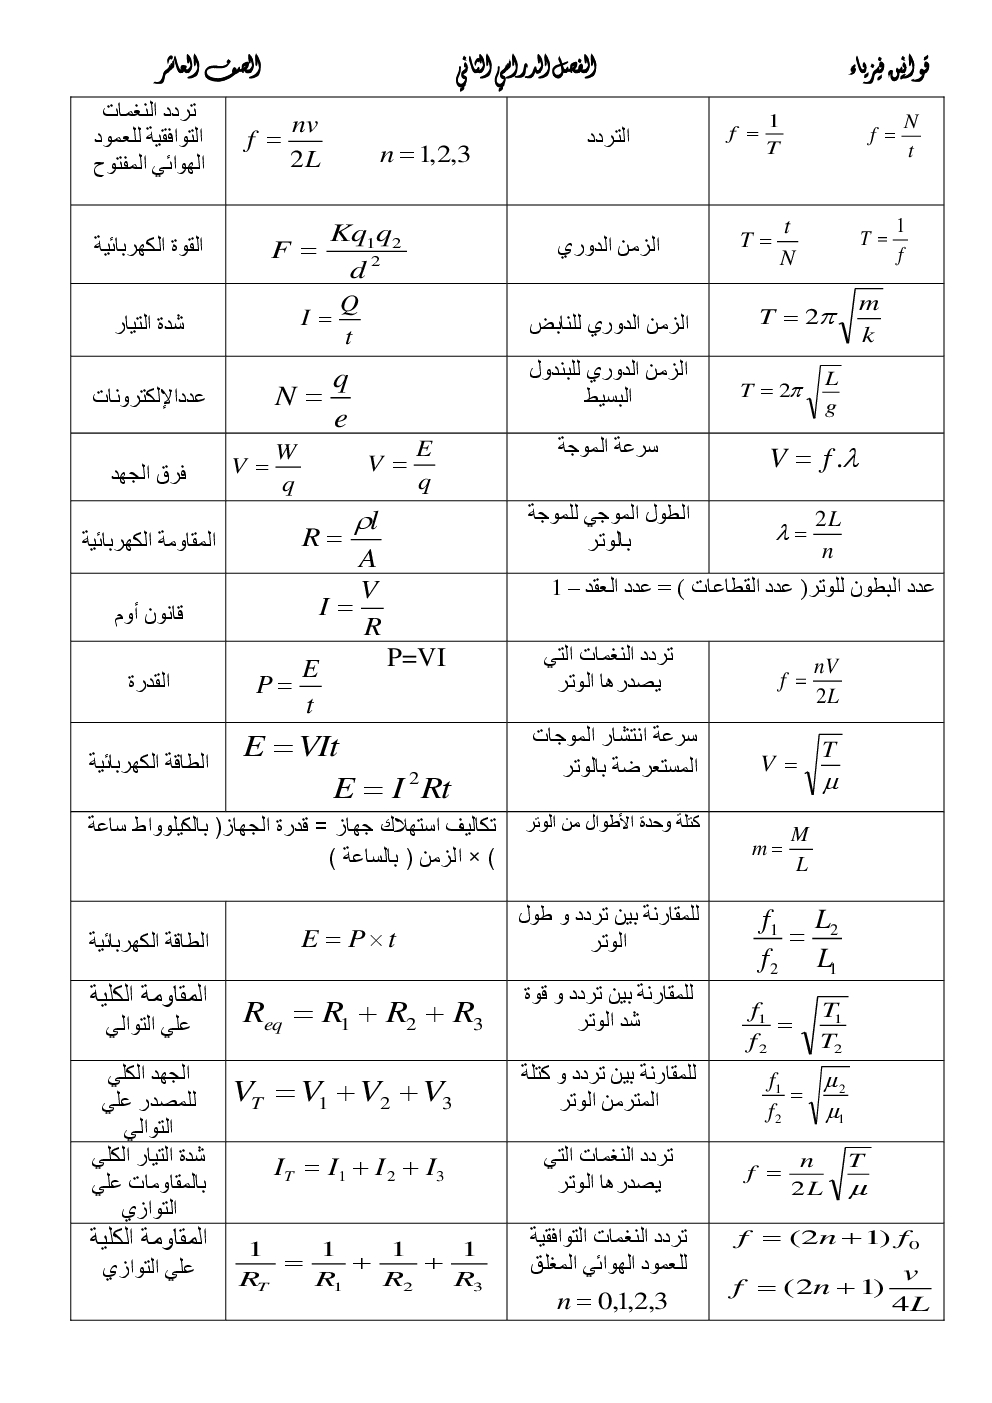 قوانين فيزياء    الفصل الدراسي الثاني    الصف العاشر
f = 1/T    f = N/t
التردد
f = nv/2L    n = 1,2,3
تردد النغمات
التوافقية للعمود
الهوائي المفتوح
T = t/N    T = 1/f
الزمن الدوري
F = Kq₁q₂/d²
القوة الكهربائية
T = 2π√(m/k)
الزمن الدوري للنابض
I = Q/t
شدة التيار
T = 2π√(L/g)
الزمن الدوري للبندول
البسيط
N = q/e
عددالإلكترونات
V = f.λ
سرعة الموجة
V = W/q    V = E/q
فرق الجهد
λ = 2L/n
الطول الموجي للموجة
بالوتر
R = ρl/A
المقاومة الكهربائية
عدد البطون للوتر( عدد القطاعات ) = عدد العقد – 1
I = V/R
قانون أوم
f = nV/2L
تردد النغمات التي
يصدرها الوتر
P=VI
P = E/t
القدرة
V = √(T/μ)
سرعة انتشار الموجات
المستعرضة بالوتر
E = VIt
E = I²Rt
الطاقة الكهربائية
m = M/L
كتلة وحدة الأطوال من الوتر
تكاليف استهلاك جهاز = قدرة الجهاز( بالكيلوواط ساعة
) × الزمن ( بالساعة )
f₁/f₂ = L₂/L₁
للمقارنة بين تردد و طول
الوتر
E = P × t
الطاقة الكهربائية
f₁/f₂ = √(T₁/T₂)
للمقارنة بين تردد و قوة
شد الوتر
R_eq = R₁ + R₂ + R₃
المقاومة الكلية
علي التوالي
f₁/f₂ = √(μ₂/μ₁)
للمقارنة بين تردد و كتلة
المترمن الوتر
V_T = V₁ + V₂ + V₃
الجهد الكلي
للمصدر علي
التوالي
f = n/2L √(T/μ)
تردد النغمات التي
يصدرها الوتر
I_T = I₁ + I₂ + I₃
شدة التيار الكلي
بالمقاومات علي
التوازي
f = (2n + 1) f₀
f = (2n + 1) v/4L
تردد النغمات التوافقية
للعمود الهوائي المغلق
n = 0,1,2,3
1/R_T = 1/R₁ + 1/R₂ + 1/R₃
المقاومة الكلية
علي التوازي